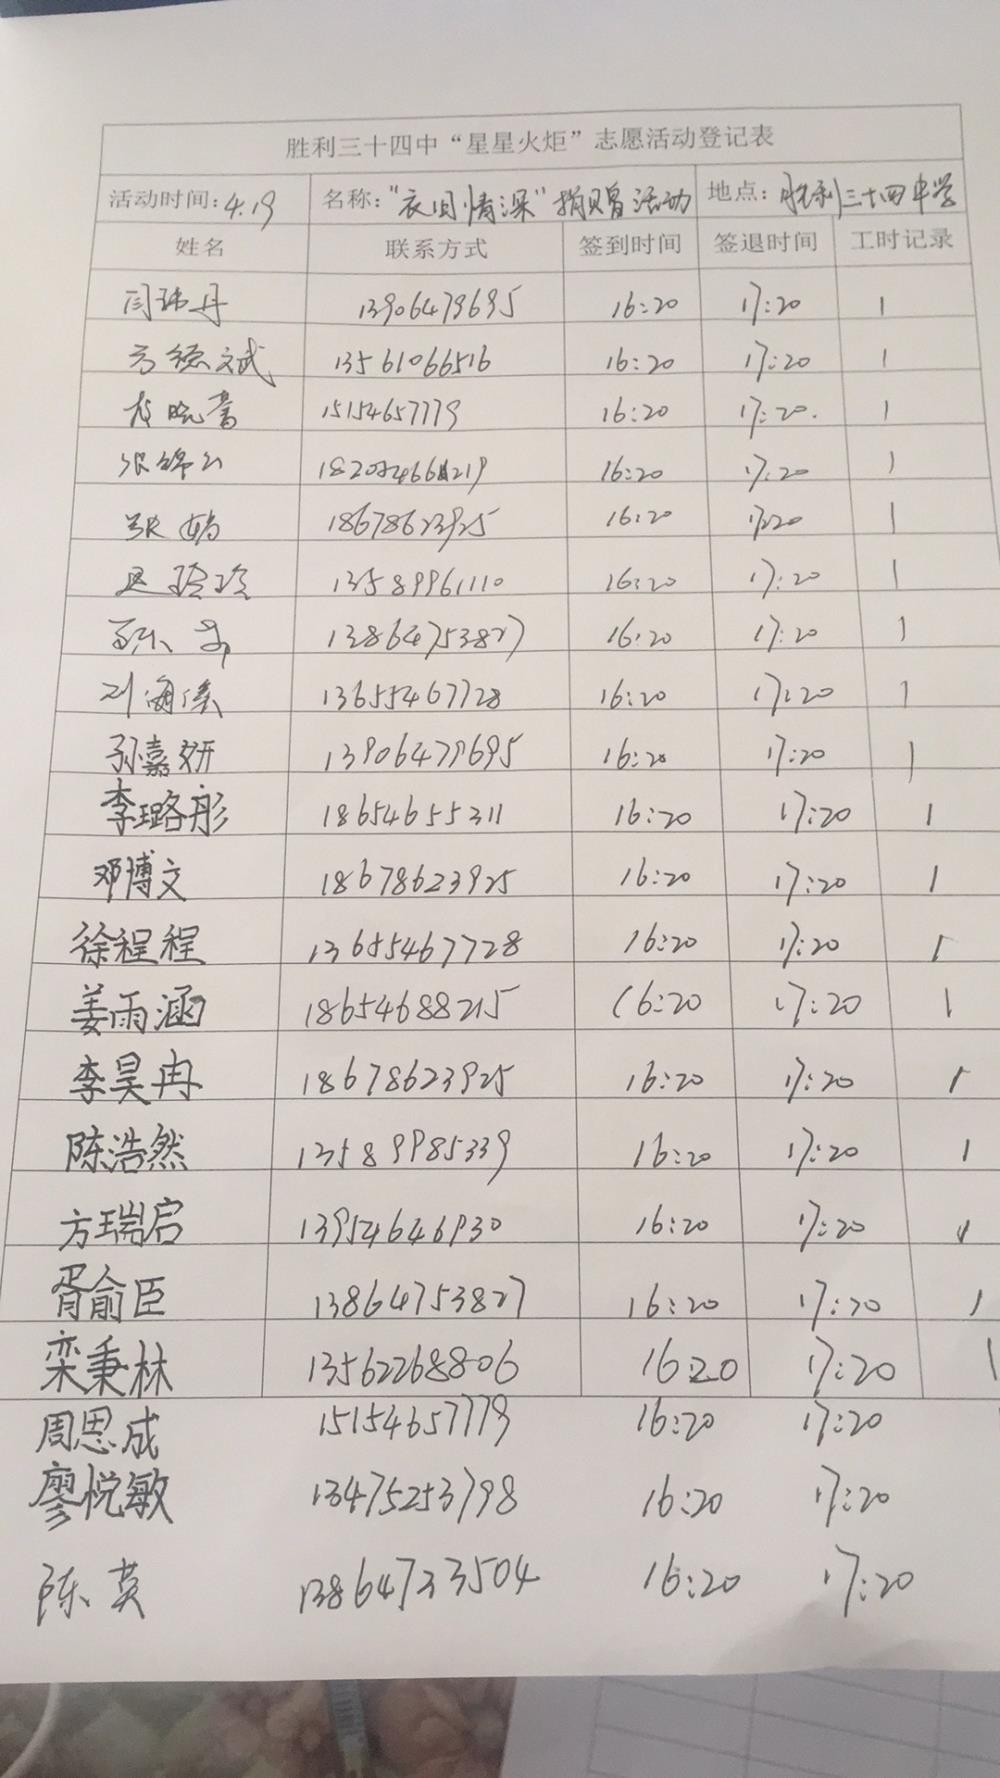 胜利三十四中“星星火炬”志愿活动登记表
活动时间:4.19 名称:“衣旧情深”捐赠活动 地点:胜利三十四中学
姓名 联系方式 签到时间 签退时间 工时记录
闫玮丹 13906479695 16:20 17:20 1
13561066516 16:20 17:20 1
15154657779 16:20 17:20. 1
16:20 17:20 1
张娟 18678623925 16:20 17:20 1
13589961110 16:20 17:20 1
13864753827 16:20 17:20 1
刘海 13655467728 16:20 17:20 1
孙嘉妍 13906479695 16:20 17:20 1
李璐彤 18654655311 16:20 17:20 1
邓博文 18678623925 16:20 17:20 1
徐程程 13655467728 16:20 17:20 1
姜雨涵 18654688215 16:20 17:20 1
李昊冉 18678623925 16:20 17:20 1
陈浩然 13589985339 16:20 17:20 1
方瑞启 13954646930 16:20 17:20 1
胥俞臣 13864753827 16:20 17:20 1
栾秉林 13562268806 16:20 17:20 1
周思成 15154657779 16:20 17:20
廖悦敏 13475253798 16:20 17:20
陈英 13864733504 16:20 17:20